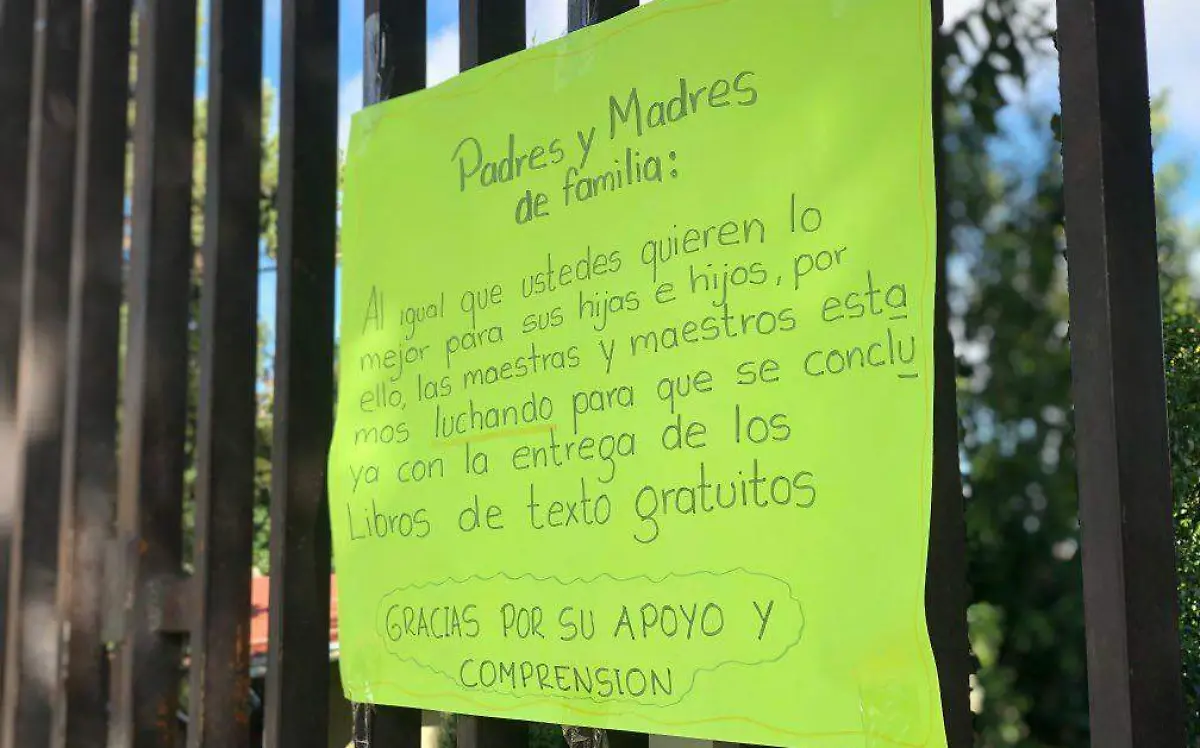 Padres y Madres
de familia:
Al igual que ustedes quieren lo
mejor para sus hijas e hijos, por
ello, las maestras y maestros esta
mos luchando para que se conclu
ya con la entrega de los
Libros de texto gratuitos
GRACIAS POR SU APOYO Y
COMPRENSION